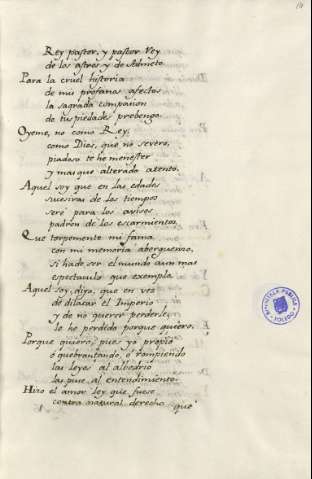 14
Rey pastor, y pastor Rey
de los astros y de Admeto
Para la cruel historia
de mis profanos afectos
la sagrada compasion
de tus piedades prebengo.
Oyeme, no como Rey,
como Dios, que no severo,
piadoso te he menester
y mas que alterado atento.
Aquel soy que en las edades
sucesivas de los tiempos
seré para los avisos
padron de los escarmientos.
Que torpemente mi fama
con mi memoria abergüenso,
si ha de ser el mundo aun mas
espectaculo que exemplo.
Aquel soy, digo, que en vez
de dilatar el Imperio
y de no querer perderle,
le he perdido porque quiero.
Porque quiero, pues yo propio
ó quebrantando, ó rompiendo
las leyes al albedrio
las puse al entendimiento.
Hizo el amor ley que fuese
contra natural derecho
que
BIBLIOTECA PUBLICA
TOLEDO